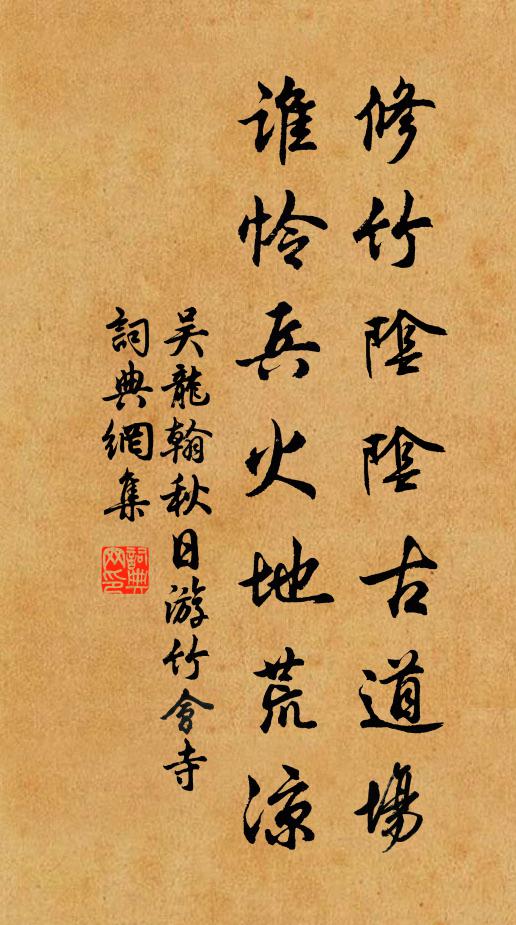 修竹陰陰古道場
谁怜兵火地荒凉
吴龍翰秋日游竹會寺
詞典網集
詞典网印